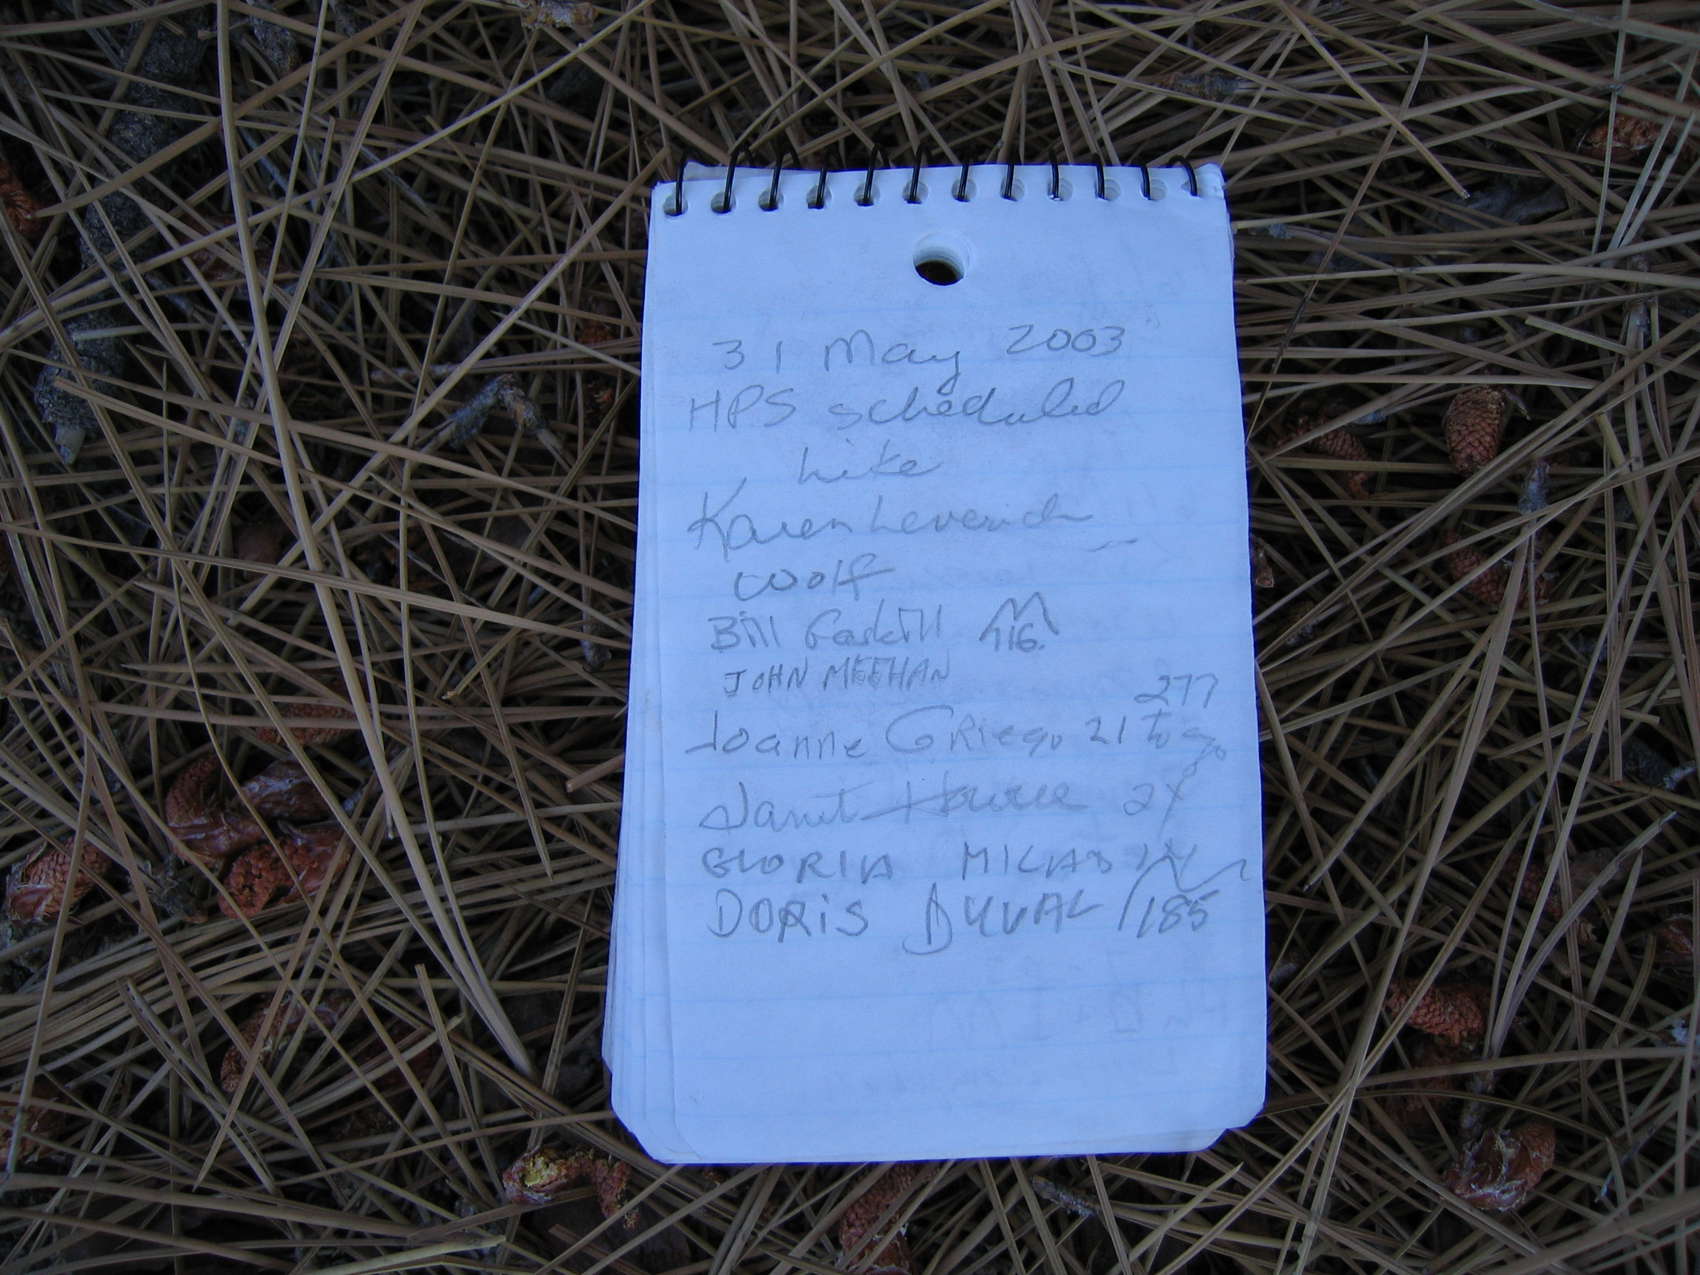 31 May 2003
HPS scheduled
hike
Karen Leverich
Wolf
Bill Gaskill 116.
JOHN MEEHAN
277
Joanne Griego 21 to go
Janet Howie 2X
GLORIA
DORIS DUVAL 185